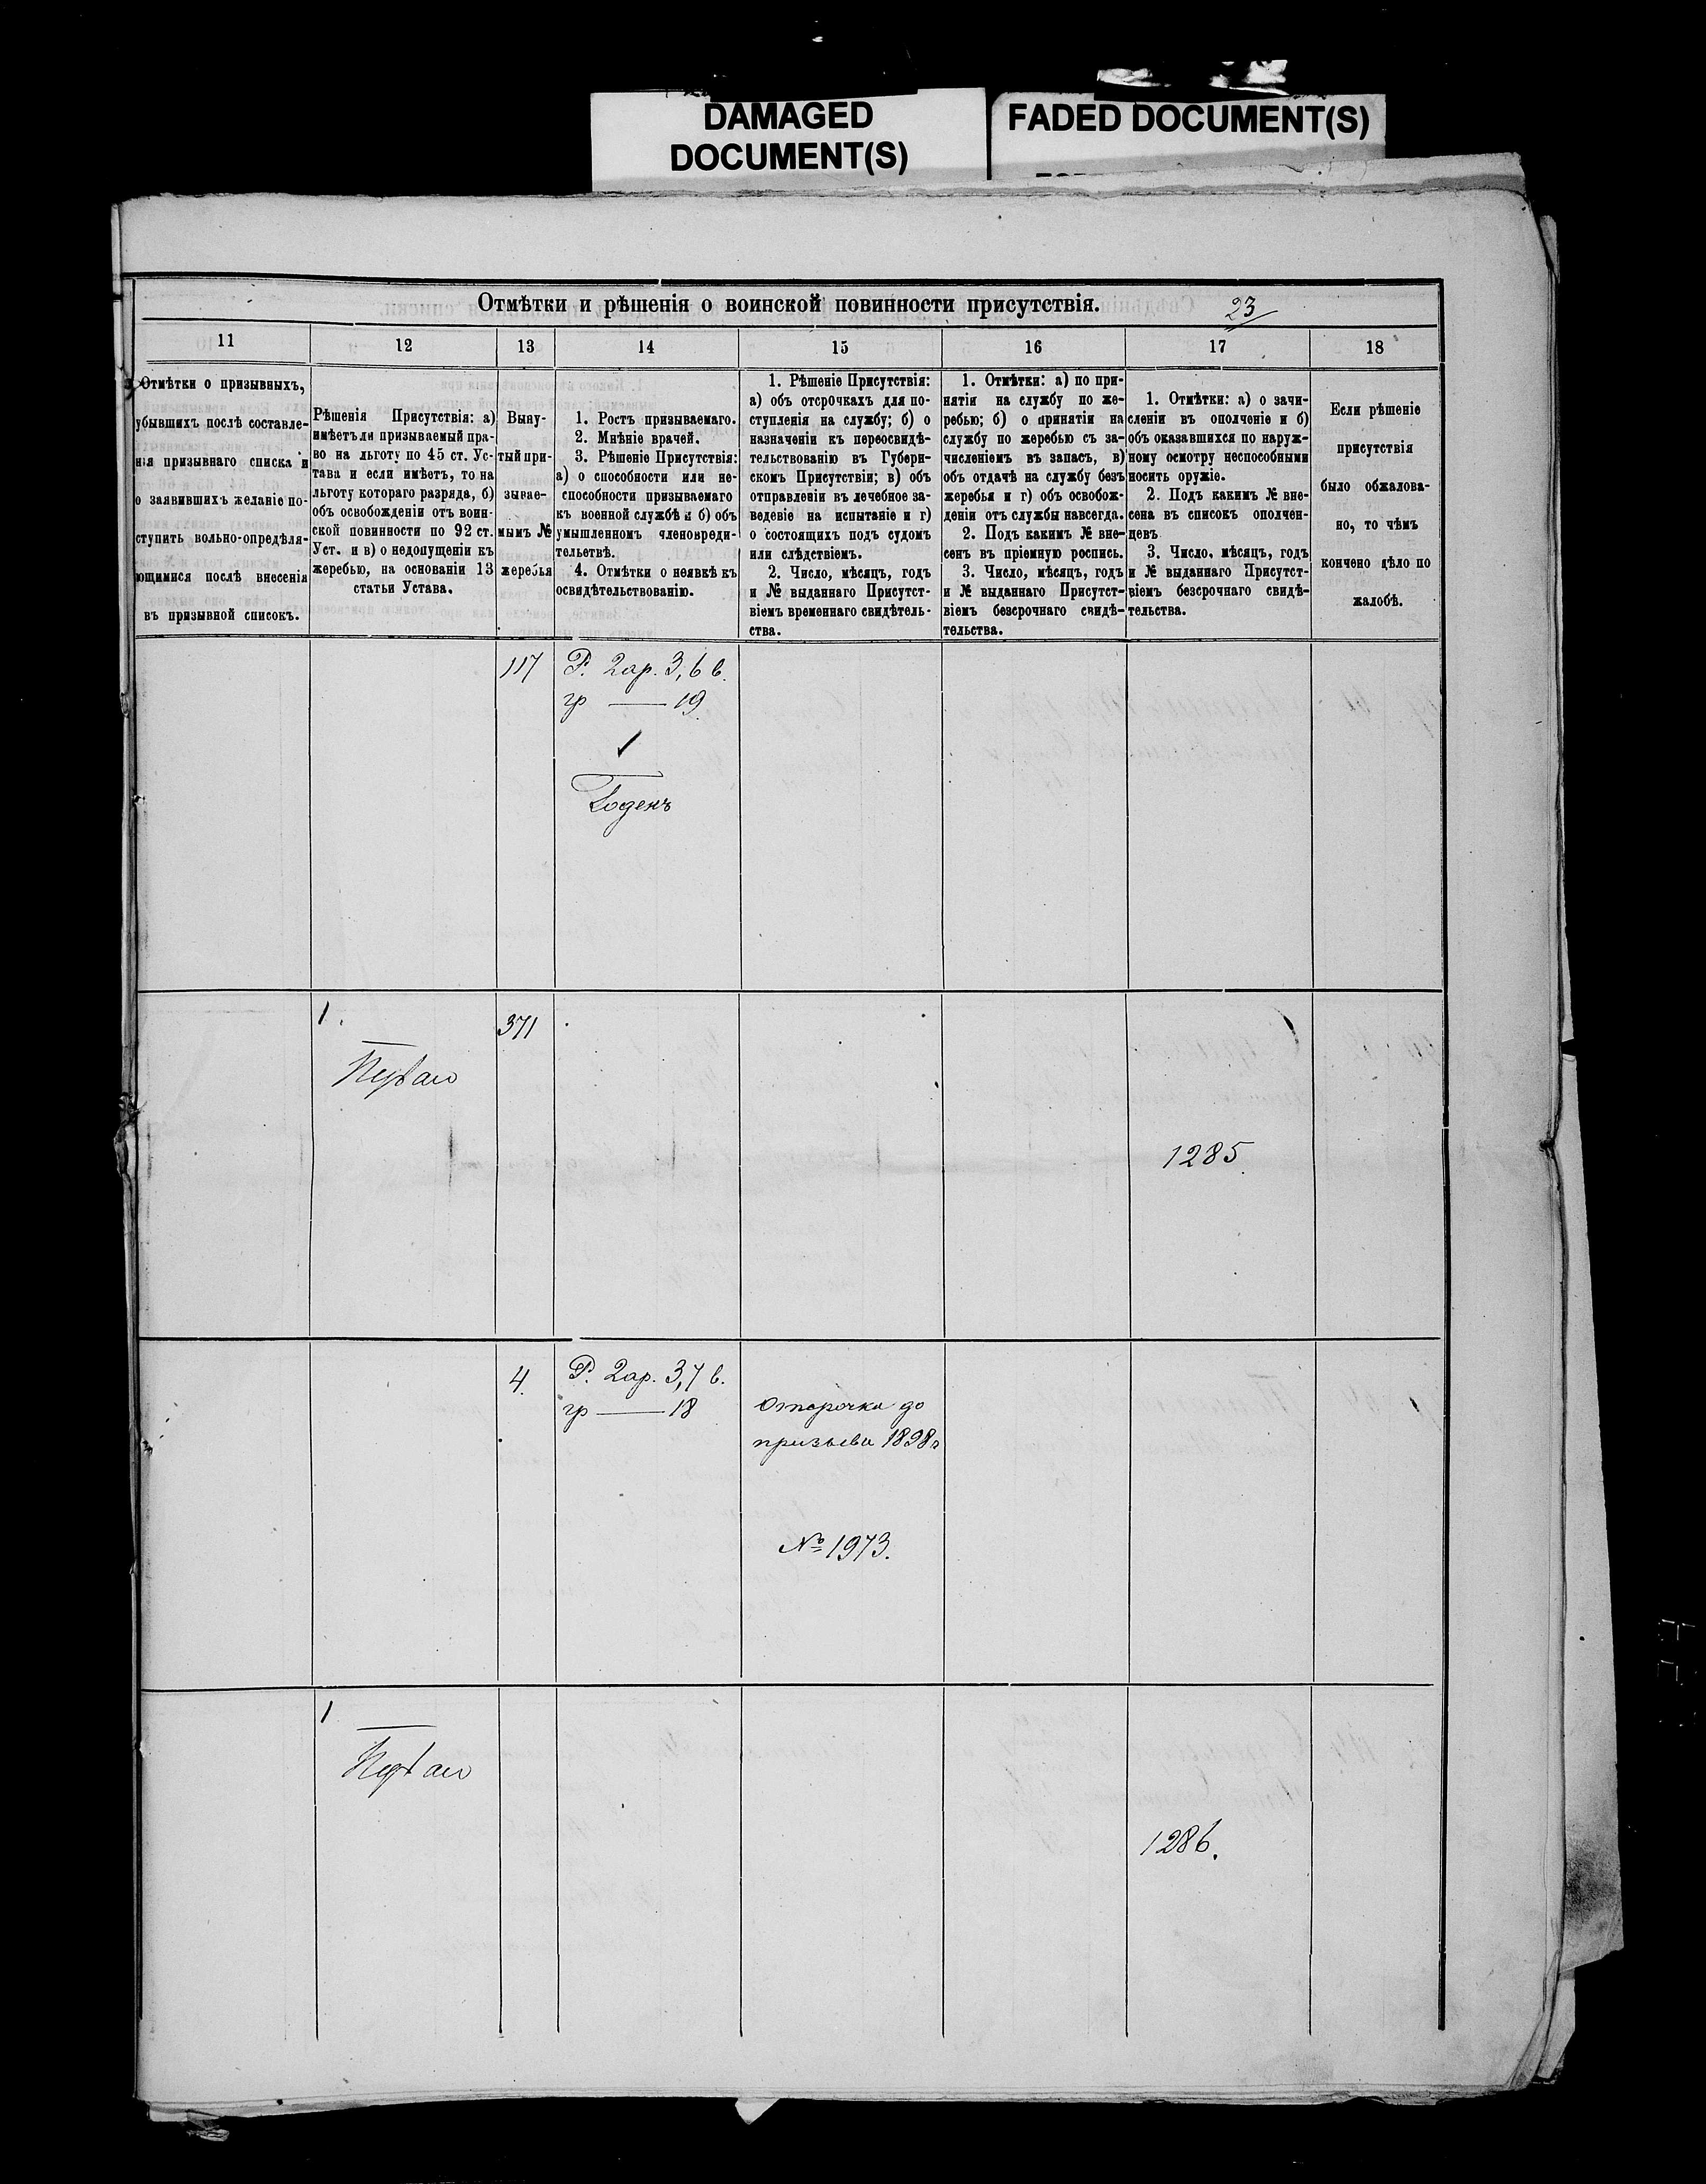 DAMAGED
DOCUMENT(S)
FADED DOCUMENT(S)
Отмѣтки и рѣшенія о воинской повинности присутствія.
23
11
12
13
14
15
16
17
18
Отмѣтки о призывныхъ,
убывшихъ послѣ составле-
нія призывнаго списка и
о заявившихъ желаніе по-
ступить вольно-опредѣля-
ющимися послѣ внесенія
въ призывной списокъ.
Рѣшенія Присутствія: а)
имѣетъ ли призываемый пра-
во на льготу по 45 ст. Ус-
тава и если имѣетъ, то на
льготу котораго разряда, б)
объ освобожденіи отъ воин-
ской повинности по 92 ст.
Уст. и в) о недопущеніи къ
жеребью, на основаніи 13
статьи Устава.
Выну-
тый при-
зывае-
мымъ №
жеребья
1. Ростъ призываемаго.
2. Мнѣніе врачей.
3. Рѣшеніе Присутствія:
а) о способности или не-
способности призываемаго
къ военной службѣ и б) объ
умышленномъ членовреди-
тельетвѣ.
4. Отмѣтки о неявкѣ къ
освидѣтельствованію.
1. Рѣшеніе Присутствія:
а) объ отсрочкахъ для по-
ступленія на службу; б) о
назначеніи къ переосвидѣ-
тельствованію въ Губерн-
скомъ Присутствіи; в) объ
отправленіи въ лечебное за-
веденіе на испытаніе и г)
о состоящихъ подъ судомъ
или слѣдствіемъ.
2. Число, мѣсяцъ, годъ
и № выданнаго Присутст-
віемъ временнаго свидѣтель-
ства.
1. Отмѣтки: а) по при-
нятіи на службу по же-
ребью; б) о принятіи на
службу по жеребью съ за-
численіемъ въ запасъ, в)
объ отдачѣ на службу безъ
жеребья и г) объ освобож-
деніи отъ службы навсегда.
2. Подъ какимъ № вне-
сенъ въ пріемную роспись.
3. Число, мѣсяцъ, годъ
и № выданнаго Присутст-
віемъ безсрочнаго свидѣ-
тельства.
1. Отмѣтки: а) о зачи-
сленіи въ ополченіе и б)
объ оказавшихся по наруж-
ному осмотру неспособными
носить оружіе.
2. Подъ какимъ № вне-
сена въ списокъ ополчен-
цевъ
3. Число, мѣсяцъ, годъ
и № выданнаго Присутст-
віемъ безсрочнаго свидѣ-
тельства.
Если рѣшеніе
присутствія
было обжалова-
но, то чѣмъ
кончено дѣло по
жалобѣ.
117
Р. 2ар. 3,6 в.
гр — 19.
Годенъ
1.
Первая
371
1285.
4.
Р. 2ар. 3,7 в.
гр — 18
Отсрочка до
призыва 1898г
№ 1973.
1
Первая
1286.